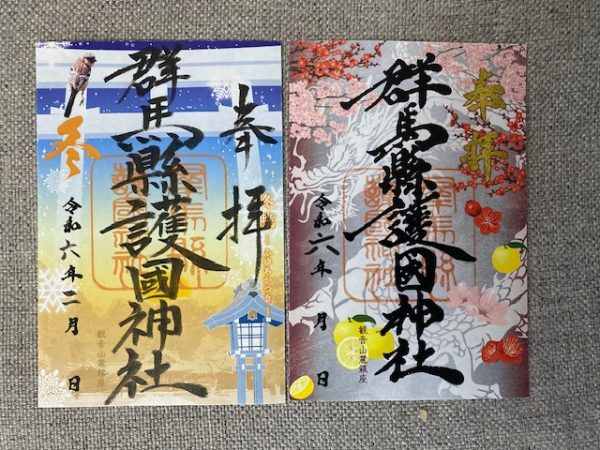 奉拝
群馬縣護國神社
冬
令和六年二月 日
観音山麓鎮座
奉拝
群馬縣護國神社
令和六年 月 日
観音山麓鎮座